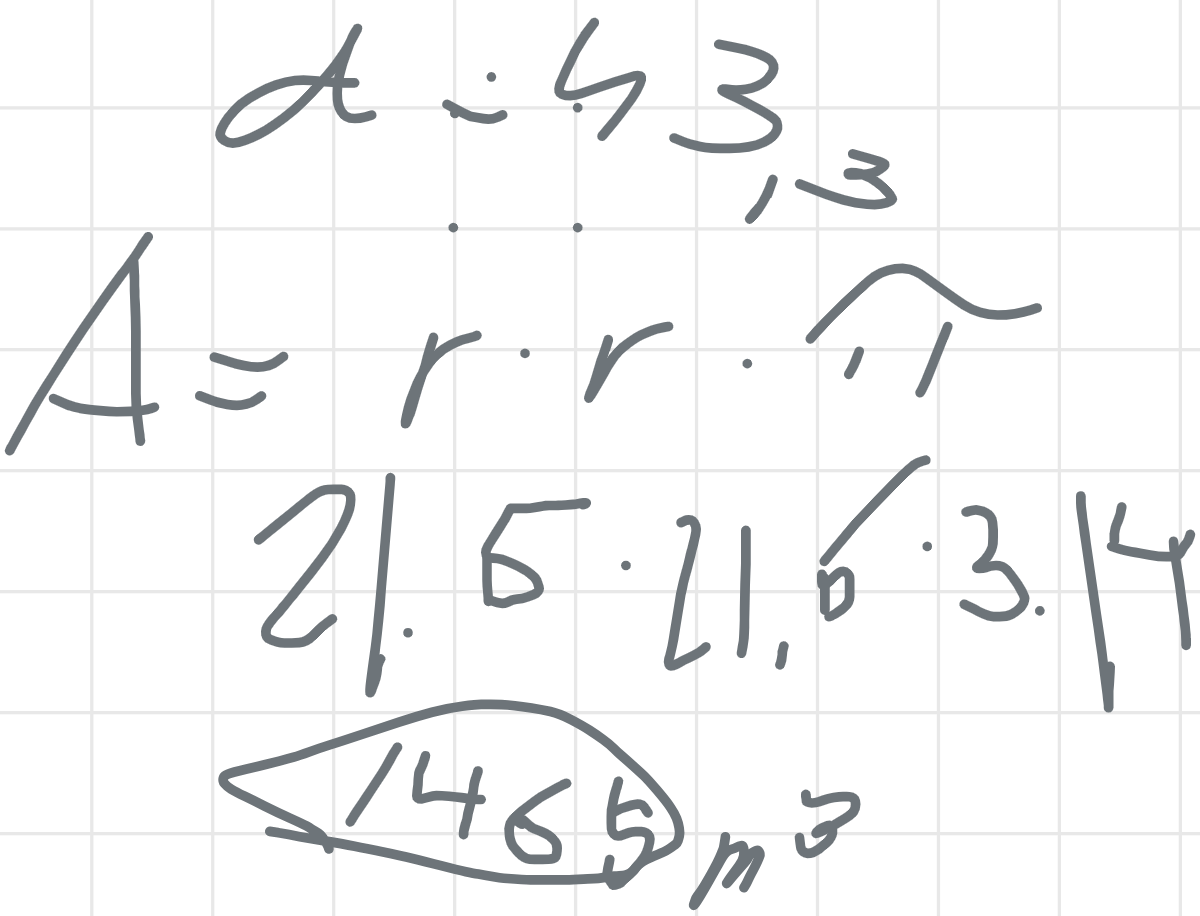 d = 43,3
A = r · r · π
21.6 · 21,6 · 3.14
1465 m³